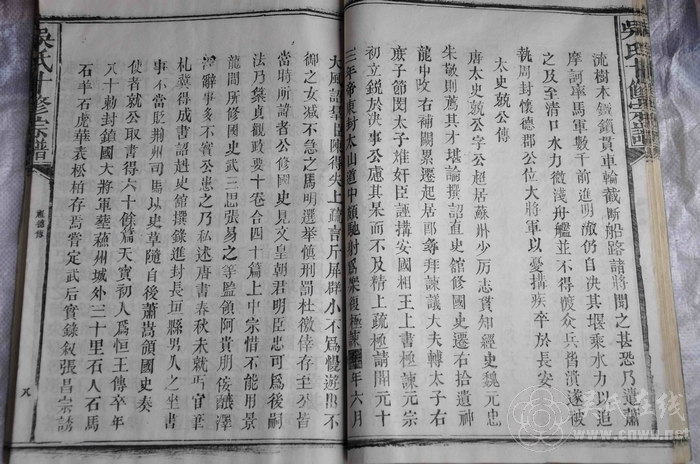 吳氏十修宗譜
流樹本鐵鎖貫車輪截斷船路諸將聞之甚恐乃遣蕭
摩訶率馬軍數千前進明徹仍自決其堰乘水力以追
之及至清口水力微淺舟艦並不得渡众兵皆潰遂被
執周封懷德郡公位大將軍以憂搆疾卒於長安
太史兢公傳
唐太史兢公字公超居蘇州少厉志貫知經史魏元忠
朱敬則薦其才堪論撰詔直史館修國史遷右拾遺神
龍中攺右補關累遷起居郎尋拜諫議大夫轉太子右
庶子節閔太子难奸臣誣搆安國相王上書極諫元宗
初立銳於決事公慮其果而不及精上疏極請開元十
三年帝東封太山道中頗馳射爲樂復極諫 年六月
大風詔羣臣陳得失上疏言斤屏群小不爲慢遊出不
御之女减不急之馬明選举慎刑罰杜徼倖存至公皆
當時所諱者公修國史見文皇朝君明臣忠可爲後嗣
法乃集貞觀政要十卷合四十篇上中宗惜不能用景
龍間所修國史武三思張易之等監領阿貴朋佞釀澤
浮辭事多不實公患之乃私述唐書春秋夫就丐官筆
札冀得成書詔赴史館撰錄進封長垣縣男久之坐書
事不當貶荆州司馬以史草隨自後蕭嵩領國史奏
使者就公取書得六十餘篇天寶初人爲恒王傳卒年
八十勅封鎮國大將軍塟蘓州城外三十里石人石馬
石羊石虎華表松柏存焉嘗定武后實錄叙張昌宗誘
吳氏十修宗譜
八
吴氏在线